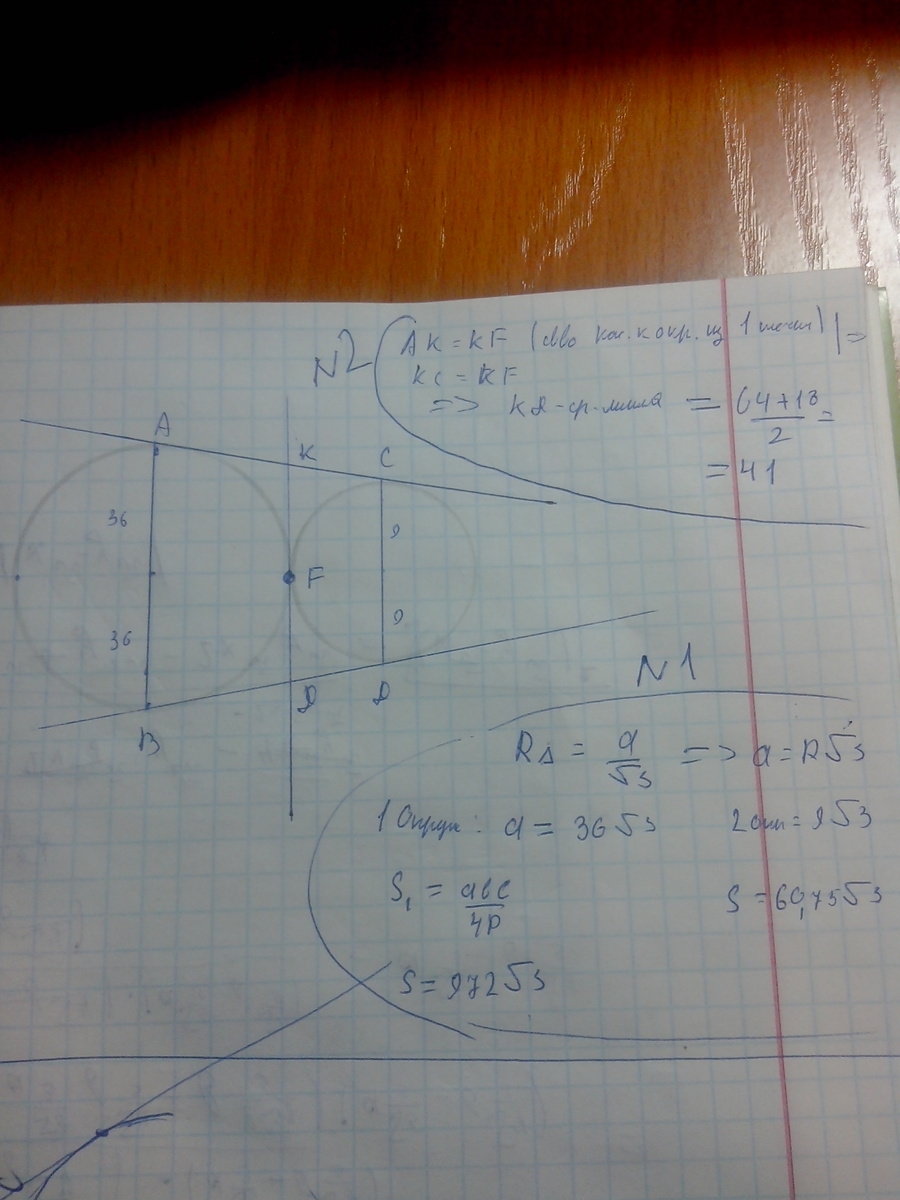 N2
AK = KF (св-во кас. к окр. из 1 точки) | =>
KC = KF
=> KD - ср. линия = 64+18 / 2 =
= 41
A
K
C
36
9
F
36
9
D
D
B
N1
R△ = a/√3 => a = R√3
1 Окруж: a = 36√3
2 окр = 9√3
S₁ = abc/4R
S = 60,75√3
S = 972√3